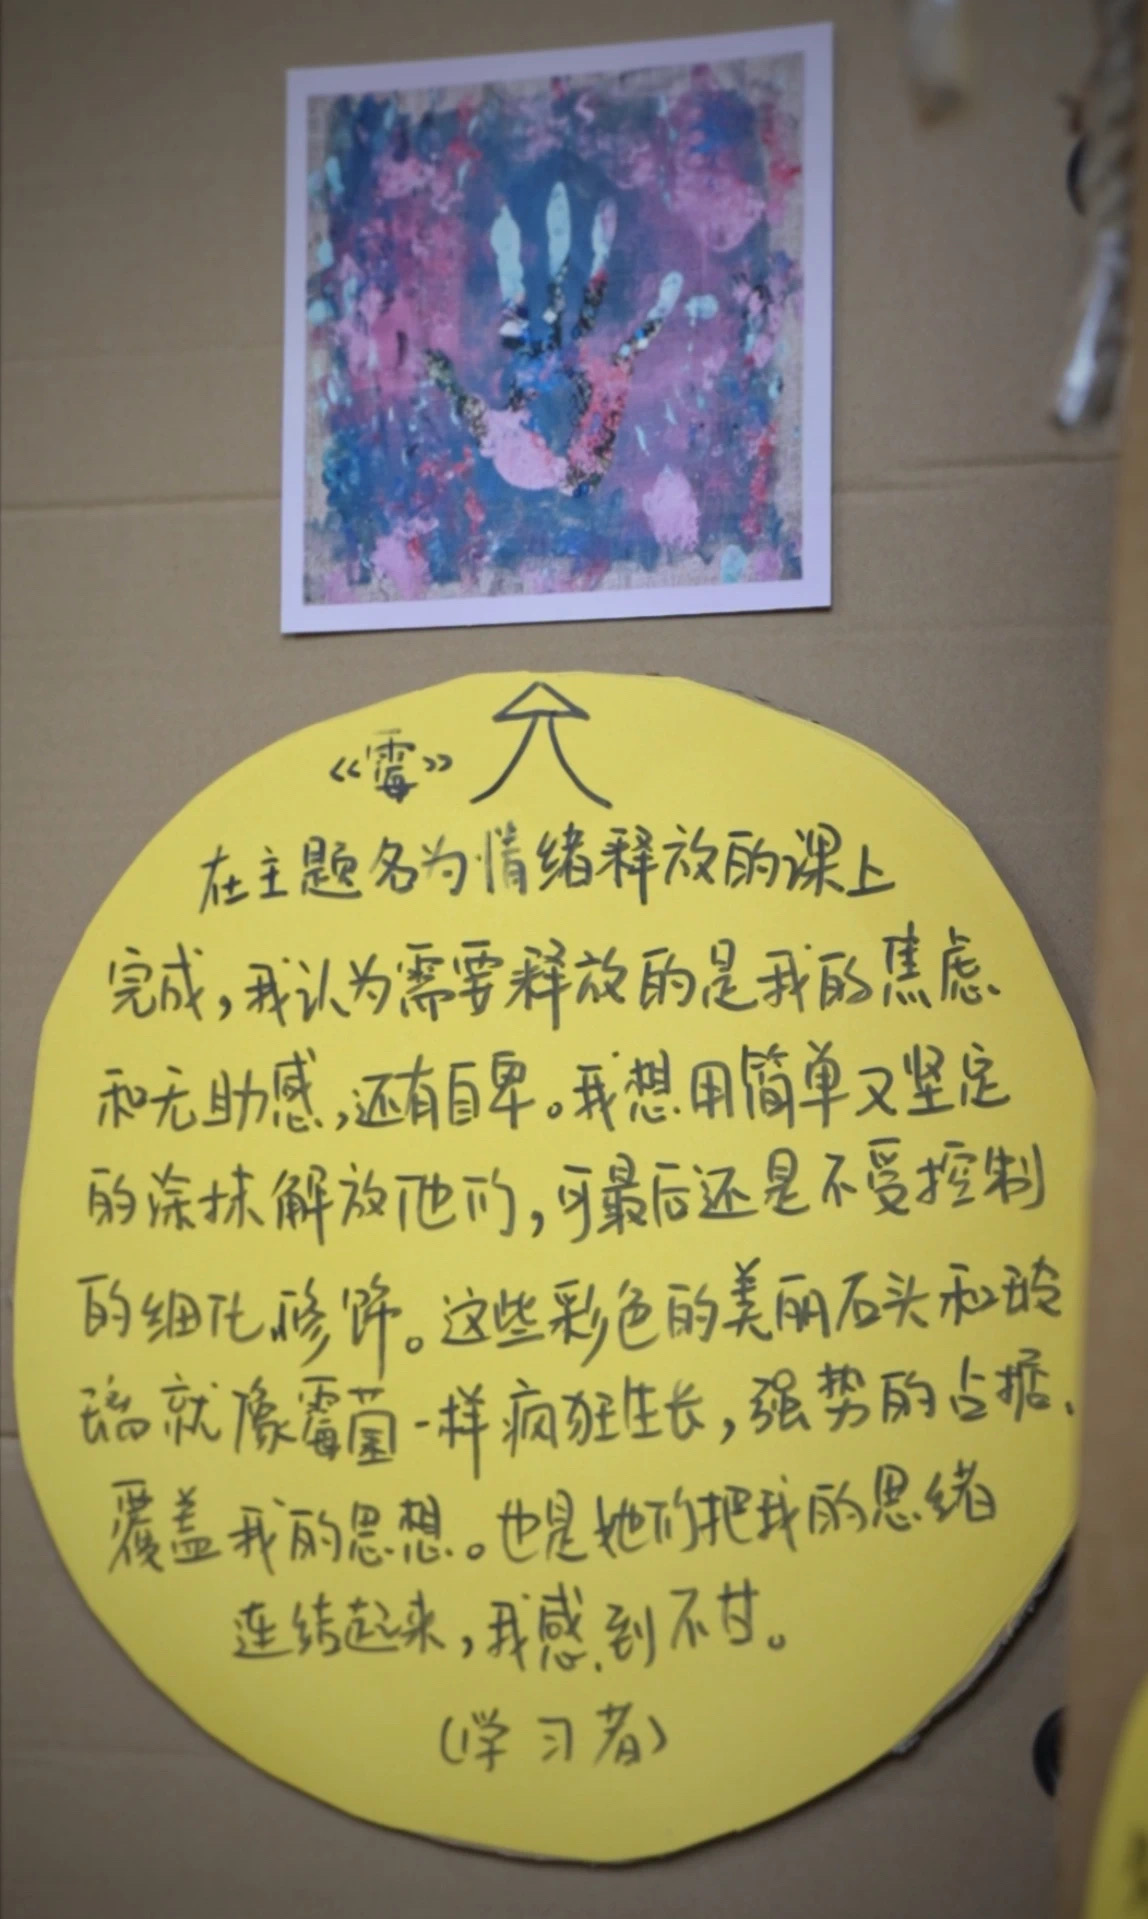 《霉》
在主题名为情绪释放的课上
完成,我认为需要释放的是我的焦虑
和无助感,还有自卑。我想用简单又坚定
的涂抹解放他们,可最后还是不受控制
的细化修饰。这些彩色的美丽石头和玻
璃就像霉菌一样疯狂生长,强势的占据、
覆盖我的思想。也是她们把我的思绪
连结起来,我感到不甘。
(学习者)